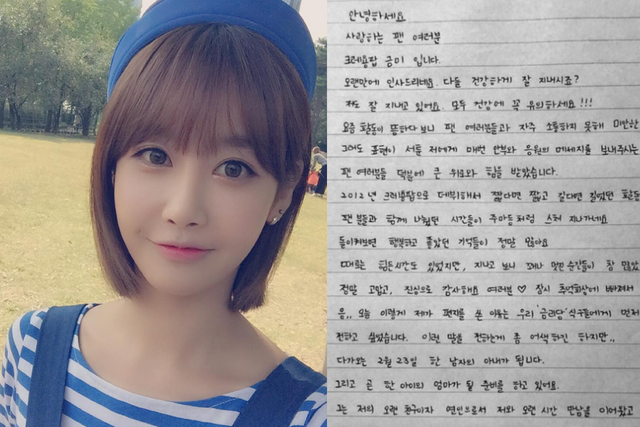 안녕하세요
사랑하는 팬 여러분
크레용팝 금미 입니다.
오랜만에 인사드리네요 다들 건강하게 잘 지내시죠?
저도 잘 지내고 있어요. 모두 건강에 꼭 유의하세요!!!
요즘 활동이 뜸하다 보니 팬 여러분들과 자주 소통하지 못해 미안한
그래도 표현이 서툰 저에게 매번 안부와 응원의 메세지를 보내주시는
팬 여러분들 덕분에 큰 위로와 힘을 받았습니다.
2012년 크레용팝으로 데뷔해서 짧다면 짧고 길다면 길었던
팬 분들과 함께 나눴던 시간들이 주마등처럼 스쳐 지나가네요
돌이켜보면 행복하고 좋았던 기억들이 정말 많아요
때로는 힘든시간도 있었지만, 지나고 보니 꽤나 멋진 순간들이 참 많았
정말 고맙고, 진심으로 감사해요 여러분 ♡ 잠시 추억회상에 빠져봐서
음,, 오늘 이렇게 제가 편지를 쓴 이유는 우리 '금리당' 식구들에게 먼저
전하고 싶었습니다. 이런 말을 전하는게 좀 어색하긴 하지만,,
다가오는 2월 23일 한 남자의 아내가 됩니다.
그리고 곧 한 아이의 엄마가 될 준비를 하고 있어요.
그는 저의 오랜 친구이자 연인으로서 저와 오랜 시간 만남을 이어왔고